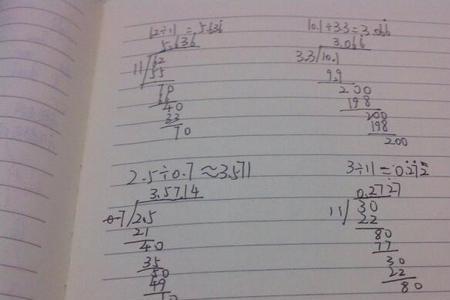 62÷11=5.636
5.636
11 62
55
70
66
40
33
70
10.1÷3.3=3.06̇6̇
3.066
3.3 10.1
9.9
200
198
200
198
200
2.5÷0.7≈3.571
3.5714
0.7 2.5
21
40
35
50
49
10
3÷11=0.2̇72̇
0.27̇27
11 30
22
80
77
30
22
80